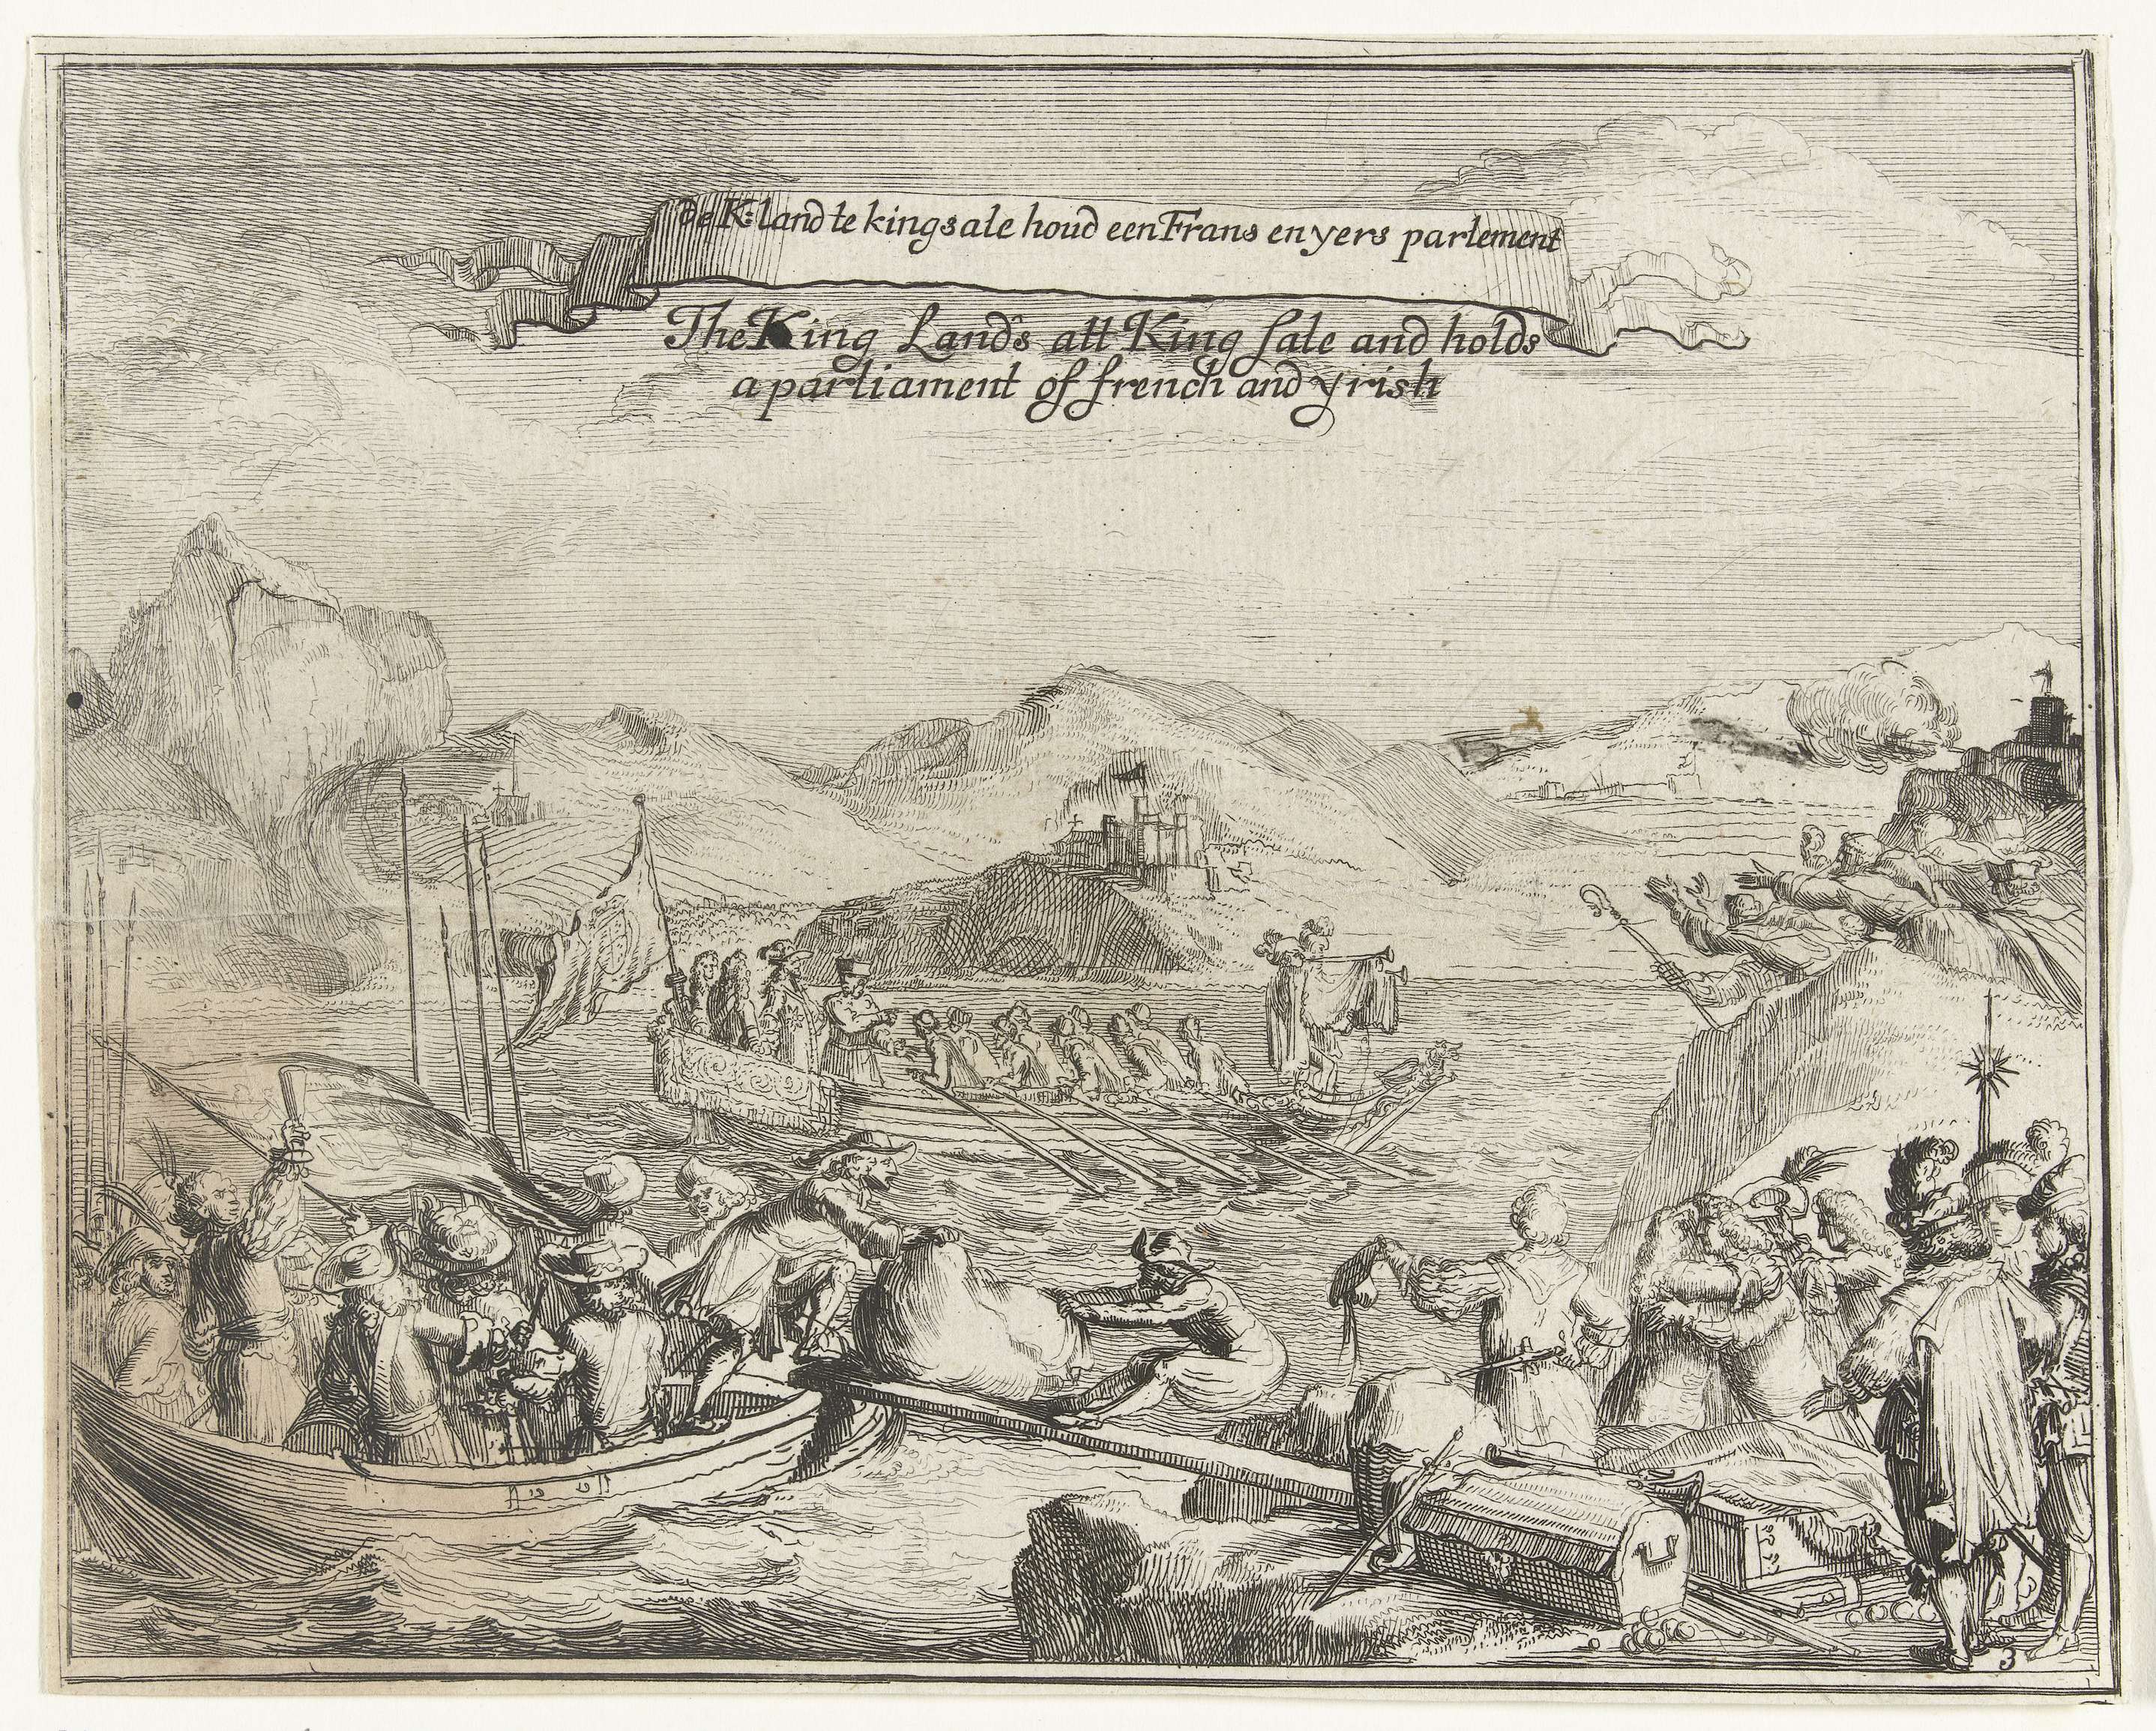 de K: land te kingsale houd een Frans en yers parlement
The King Lands att King sale and holds
a parliament of french and yrish
3